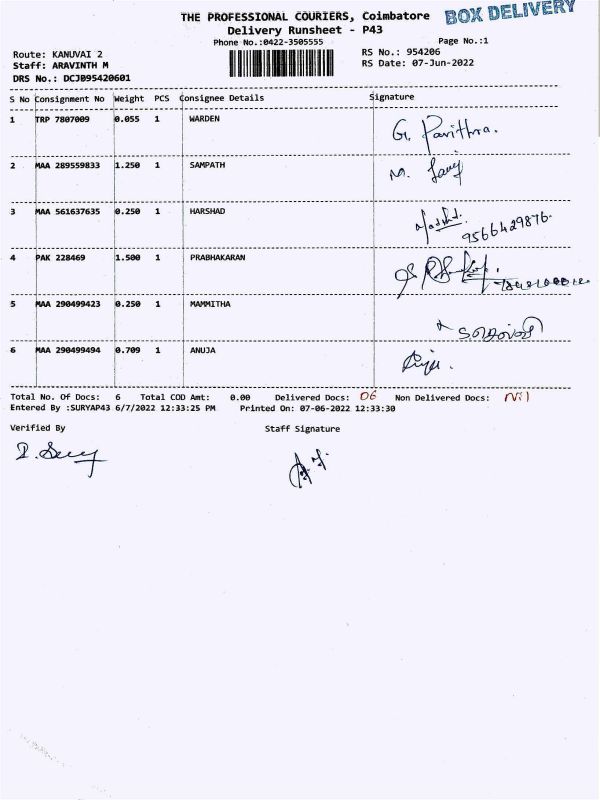 THE PROFESSIONAL COURIERS, Coimbatore BOX DELIVERY
Delivery Runsheet - P43
Phone No.:0422-3505555 Page No.:1
Route: KANUVAI 2 RS No.: 954206
Staff: ARAVINTH M RS Date: 07-Jun-2022
DRS No.: DCJB95420601
S No Consignment No Weight PCS Consignee Details Signature
1 TRP 7807009 0.055 1 WARDEN G. Pavithra.
2 MAA 289559833 1.250 1 SAMPATH M.
3 MAA 561637635 0.250 1 HARSHAD
9566429876.
4 PAK 228469 1.500 1 PRABHAKARAN
5 MAA 290499423 0.250 1 MAMMITHA
6 MAA 290499494 0.709 1 ANUJA
Total No. Of Docs: 6 Total COD Amt: 0.00 Delivered Docs: 06 Non Delivered Docs: Nil
Entered By :SURYAP43 6/7/2022 12:33:25 PM Printed On: 07-06-2022 12:33:30
Verified By Staff Signature